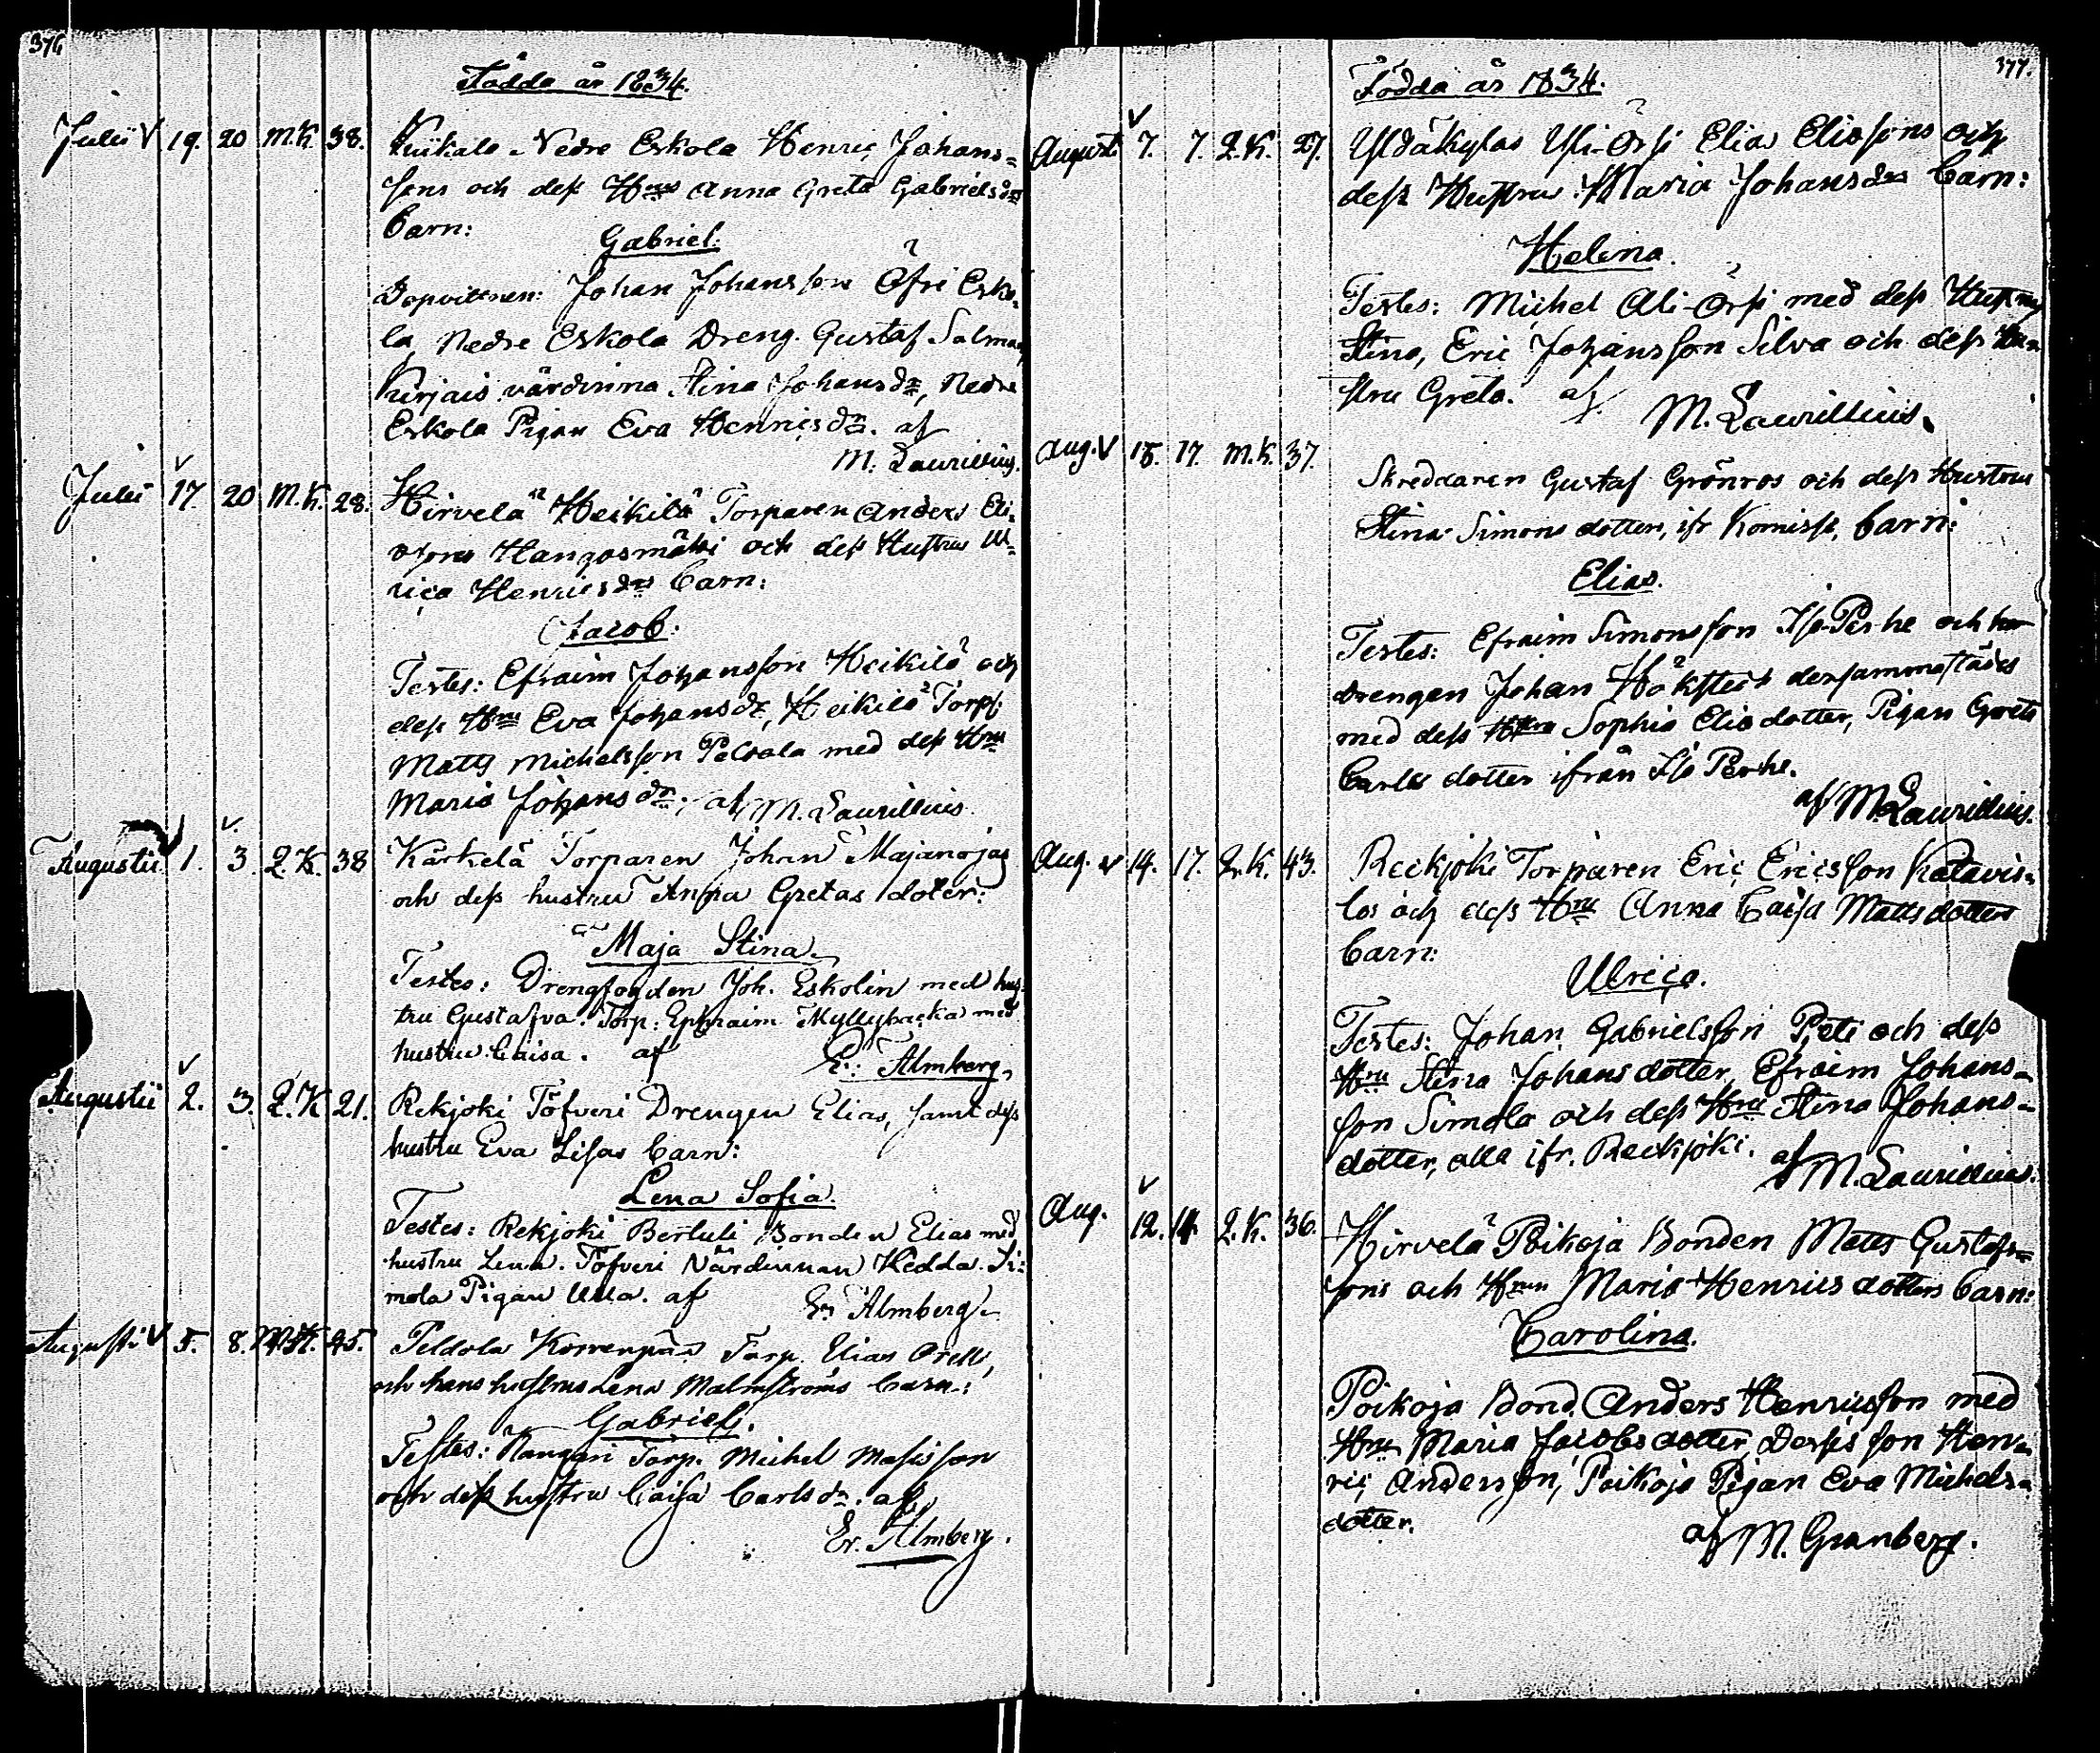 376
Födda år 1834.
Julii V 19. 20 M.K. 38. Kuikala Nedre Eskola Henric Johans=
sons och dess Hrus Anna Greta Gabrielsdrs
Barn:
Gabriel.
Dopvittnen: Johan Johansson Öfre Esko=
la, Nedre Eskola Dreng. Gustaf Salma
värdinna Stina Johansdr, Nedre
Eskola Pigan Eva Henricsdr. af
M. Laurellius.
Julii 17. 20 M.K. 28. Hirvelä Heikilä Torparen Anders Eli=
Hangosmäki och dess Hustrus Ul=
rica Henricsdrs Barn:
Jacob.
Testes: Efraim Johansson Heikilä och
dess Hru Eva Johansdr, Heikilä Torp.
Matts Michelsson Peldola med dess Hru
Maria Johansdr. af M. Laurellius.
Augustii V 1. 3. Q.K. 38 Kärkelä Torparen Johan Majanojas
och dess hustru Anna Gretas doter:
Maja Stina.
Testes: Drengfogden Joh. Eskolin med hus=
tru Gustafva. Torp: Ephraim Myllybacka med
hustru Caisa. af Er: Almberg.
Augustii 2. 3. Q.K 21. Rekjoki Töfveri Drengen Elias, samt dess
hustru Eva Lisas Barn:
Lena Sofia.
Testes: Rekjoki Bertuli Bonden Elias med
hustru Lena. Töfveri Värdinnan Hedda. Si=
mola Pigan Ulla. af Er: Almberg.
Augusti V 5. 8. M.K. 45. Peldola Korrenpää Torp. Elias Orell,
och hans hustrus Lena Malmströms Barn:
Gabriel.
Testes: Kangari Torp. Michel Masisson
och dess hustru Caisa Carlsdr. af
Er. Almberg.
377.
Födda år 1834.
Augusti V 7. 7. Q.K. 27. Uldäkylas Uli-Örsi Elias Eliasons och
dess Hustrus Maria Johansdrs Barn:
Helena.
Testes: Michel Ali-Örsi med dess Hustru
Stina, Eric Johansson Silva och dess Hu=
stru Greta. af M. Laurellius.
Aug. V 15. 17. M.K. 37.
Skreddaren Gustaf Grönros och dess Hustrus
Stina Simons dotter, ifr Komissi, Barn:
Elias.
Testes: Efraim Simonsson Iso-Perhe och
Drengen Johan Hökstedt dersammastädes
med dess Hru Sophia Elias dotter, Pigan Greta
Carls dotter ifrån Iso Perhe.
af M. Laurellius.
Aug. V 14. 17. Q.K. 43. Reikjoki Torparen Eric Ericsson Katavis=
los och dess Hru Anna Caisa Mattsdotters
Barn:
Ulrica.
Testes: Johan Gabrielsson Peti och dess
Hru Stina Johansdotter, Efraim Johans=
son Simola och dess Hru Stina Johans=
dotter, alla ifr. Reikjoki. af
M. Laurellius.
Aug. V 12. 14. Q.K. 36. Hirvelä Poikoja Bonden Matts Gustafs=
sons och Hruns Maria Henricsdotters Barn:
Carolina.
Poikoja Bond. Anders Henricsson med
Hru Maria Jacobsdotter, Derfis son Hen=
ric Andersson, Poikoja Pigan Eva Michels=
dotter.
af M. Granberg.